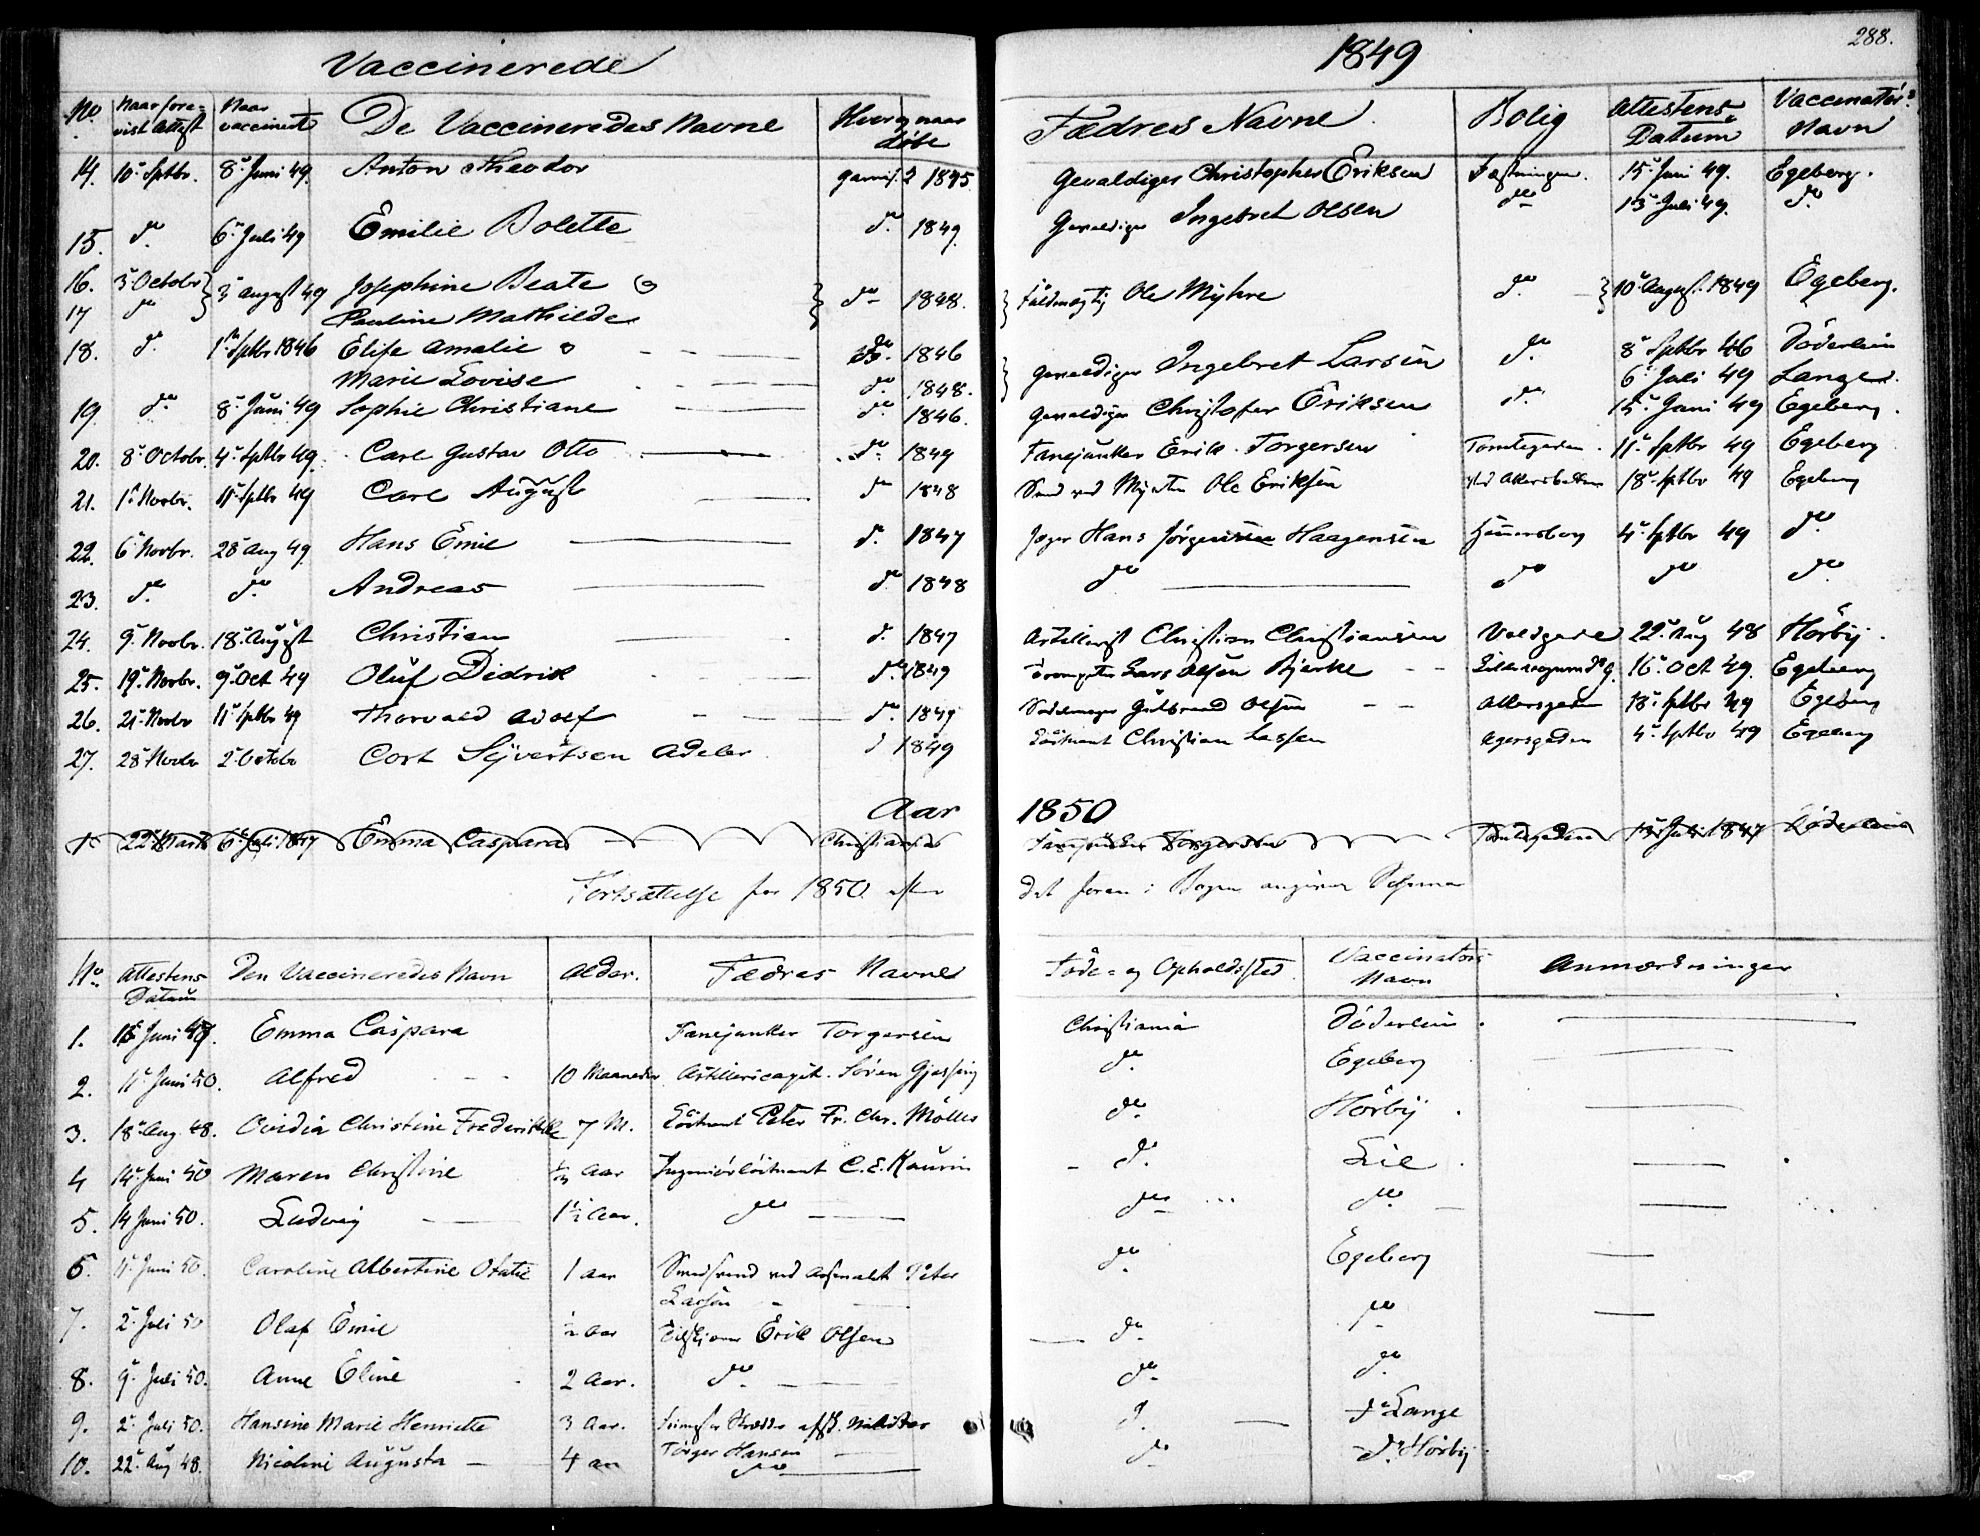 Vaccinerede 1849 288.
No. Naar fore-vist Attest Naar vaccineret De Vaccineredes Navne Hvor og naar døbt Fædres Navne Bolig Attestens Datum Vaccinatörs Navn
14. 10 Sptbr. 8 Juni 49. Anton Theodor Garnis. 1845. Gevaldiger Christopher Eriksen Fæstningen. 15 Juni 49. Egeberg.
15. do 6 Juli 49 Emilie Bolette do 1849. Gevaldiger Ingebret Olsen do 13 Juli 49. do
16. 3 Octobr 3 August 49 Josephine Beate do 1848. Ole Myhre do 10 August 1849 Egeberg.
17 do Pauline Mathilde
18. do 1 Sptbr 1846 Elise Amalie do 1846 Gevaldiger Ingebret Larsen do 8 Sptbr 46 Döderlein
Marie Lovise do 1848. 6 Juli 49 Lange.
19. do 8 Juni 49 Sophie Christiane do 1846. Gevaldiger Christofer Eriksen do 15 Juni 49 Egeberg.
20. 8 Octobr. 4 Sptbr 49. Carl Gustav Otto do 1849 Fanejunker Erik Torgersen Tomtegaden. 11 Sptbr 49 Egeberg
21. 1 Novbr. 11 Sptbr 49 Carl August do 1848 Ole Eriksen 18 Sptbr 49 Egeberg
22. 6 Novbr. 28 Aug 49. Hans Emil do 1847 Jæger Hans Jörgensen Haagensen Hammersborg 4 Sptbr 49 do
23. do do Andreas do 1848 do do do do
24. 9 Novbr. 18 August Christian d. 1847 Artillerist Christian Christiansen Voldgade 22 Aug 48 Hörbÿ.
25. 19 Novbr. 9 Oct 49 Oluf Didrik do 1849 Trompeter Lars Olsen Bjerke 16 Oct 49. Egeberg
26. 21 Novbr 11 Sptbr 49 Thorvald Adolf do 1849 Sadelmager Gulbrand Olsen Akersgaden 18 Sptbr 49 Egeberg
27. 28 Novbr 2 Octobr Cort Sÿvertsen Adeler d 1849 Löitnant Christian Lassen Agersgaden 4 Sptbr 49 Egeberg
Aar 1850
1. 22 Marts 6 Juli 1847 Emma Caspara Christiania Fanejunker Torgersen Tomtegaden 13 Juli 1847 Döderlein
Fortsættelse for 1850 efter det foran i Bogen angivne Schema
No. Attestens Datum Den Vaccineredes Navn Alder. Fædres Navne Føde- og Opholdssted Vaccinators Navn Anmærkninger
1. Juni 47. Emma Caspara Fanejunker Torgersen Christiania Döderlein.
2. 11 Juni 50. Alfred 10 Maaneder Sören Gjessing do Egeberg
3. 18 Aug. 48. Ovidia Christine Frederikke 7 M. Löitnant Peter Fr. Chr. Möller do Hörbÿ.
4 14 Juni 50 Maren Christine ½ Aar Ingeniörlöitnant C. E. Kaurin do Lie.
5. 14 Juni 50. Ludvig 1½ Aar. do do do
6. 11 Juni 50. Caroline Albertine Otatie 1 Aar Smedsvend ved Arsenalet Peter Larsen do Egeberg
7. 2 Juli 50 Olaf Emil ½ Aar Erik Olsen do do
8. 9 Juli 50. Anne Eline 2 Aar. do do do
9. 2 Juli 50. Hansine Marie Henriette 3 Aar. d. Lange
Törger Hansen
10. 22 Aug 48. Nicoline Augusta 4 aar do do Dr. Hörbÿ.